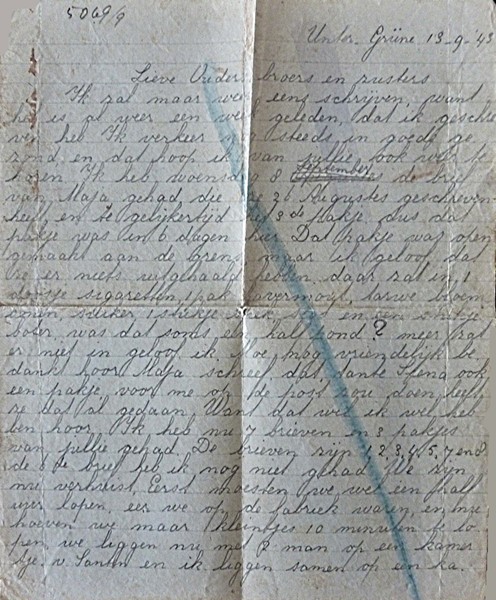 5069/9
Unter-Grüne 13-9-'43
Lieve Ouders broers en zusters
Ik zal maar weer eens schrijven, want
het is al weer een week geleden, dat ik geschre
ven heb. Ik verkeer nog steeds in goede ge
zond, en dat hoop ik van jullie ook weer te
horen. Ik heb woensdag 8 September de brief
van Maja gehad, die ze 26 Augustes geschreven
heeft en te gelijkertijd het 3de pakje dus dat
pakje was in 6 dagen hier. Dat pakje was open
gemaakt aan de grens, maar ik geloof dat
ze er niets uitgehaald hebben. daar zat in 1
doosje sigaretten, 1 pak havermout, tarwe bloem
suiker, 1 stukje en een
boter, was dat soms een half pond? meer zat
er niet in geloof ik. Nog vriendelijk be
dankt hoor. Maja schreef, dat tante ook
een pakje voor me op de post zou doen, heeft
ze dat al gedaan. Want dat wil ik wel heb
ben hoor. Ik heb nu 7 brieven en 3 pakjes
van jullie gehad. De brieven zijn 1,2,3,4,5,7 en 8
de 6de brief heb ik nog niet gehad. We zijn
nu verhuist. Eerst moesten we wel een half
uur lopen, eer we op de fabriek waren, en nu
hoeven we maar kleintjes 10 minuten te lo
pen, we liggen nu met 2 man op een kamer
tje. v. Santen en ik liggen samen op een ka.